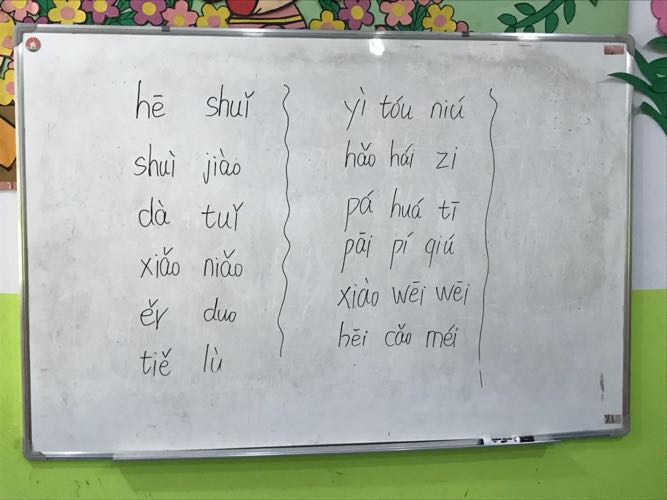 hē shuǐ
shuì jiào
dà tuǐ
xiǎo niǎo
ěr duo
tiě lù
yì tóu niú
hǎo hái zi
pá huá tī
pāi pí qiú
xiào wēi wēi
hēi cǎo méi